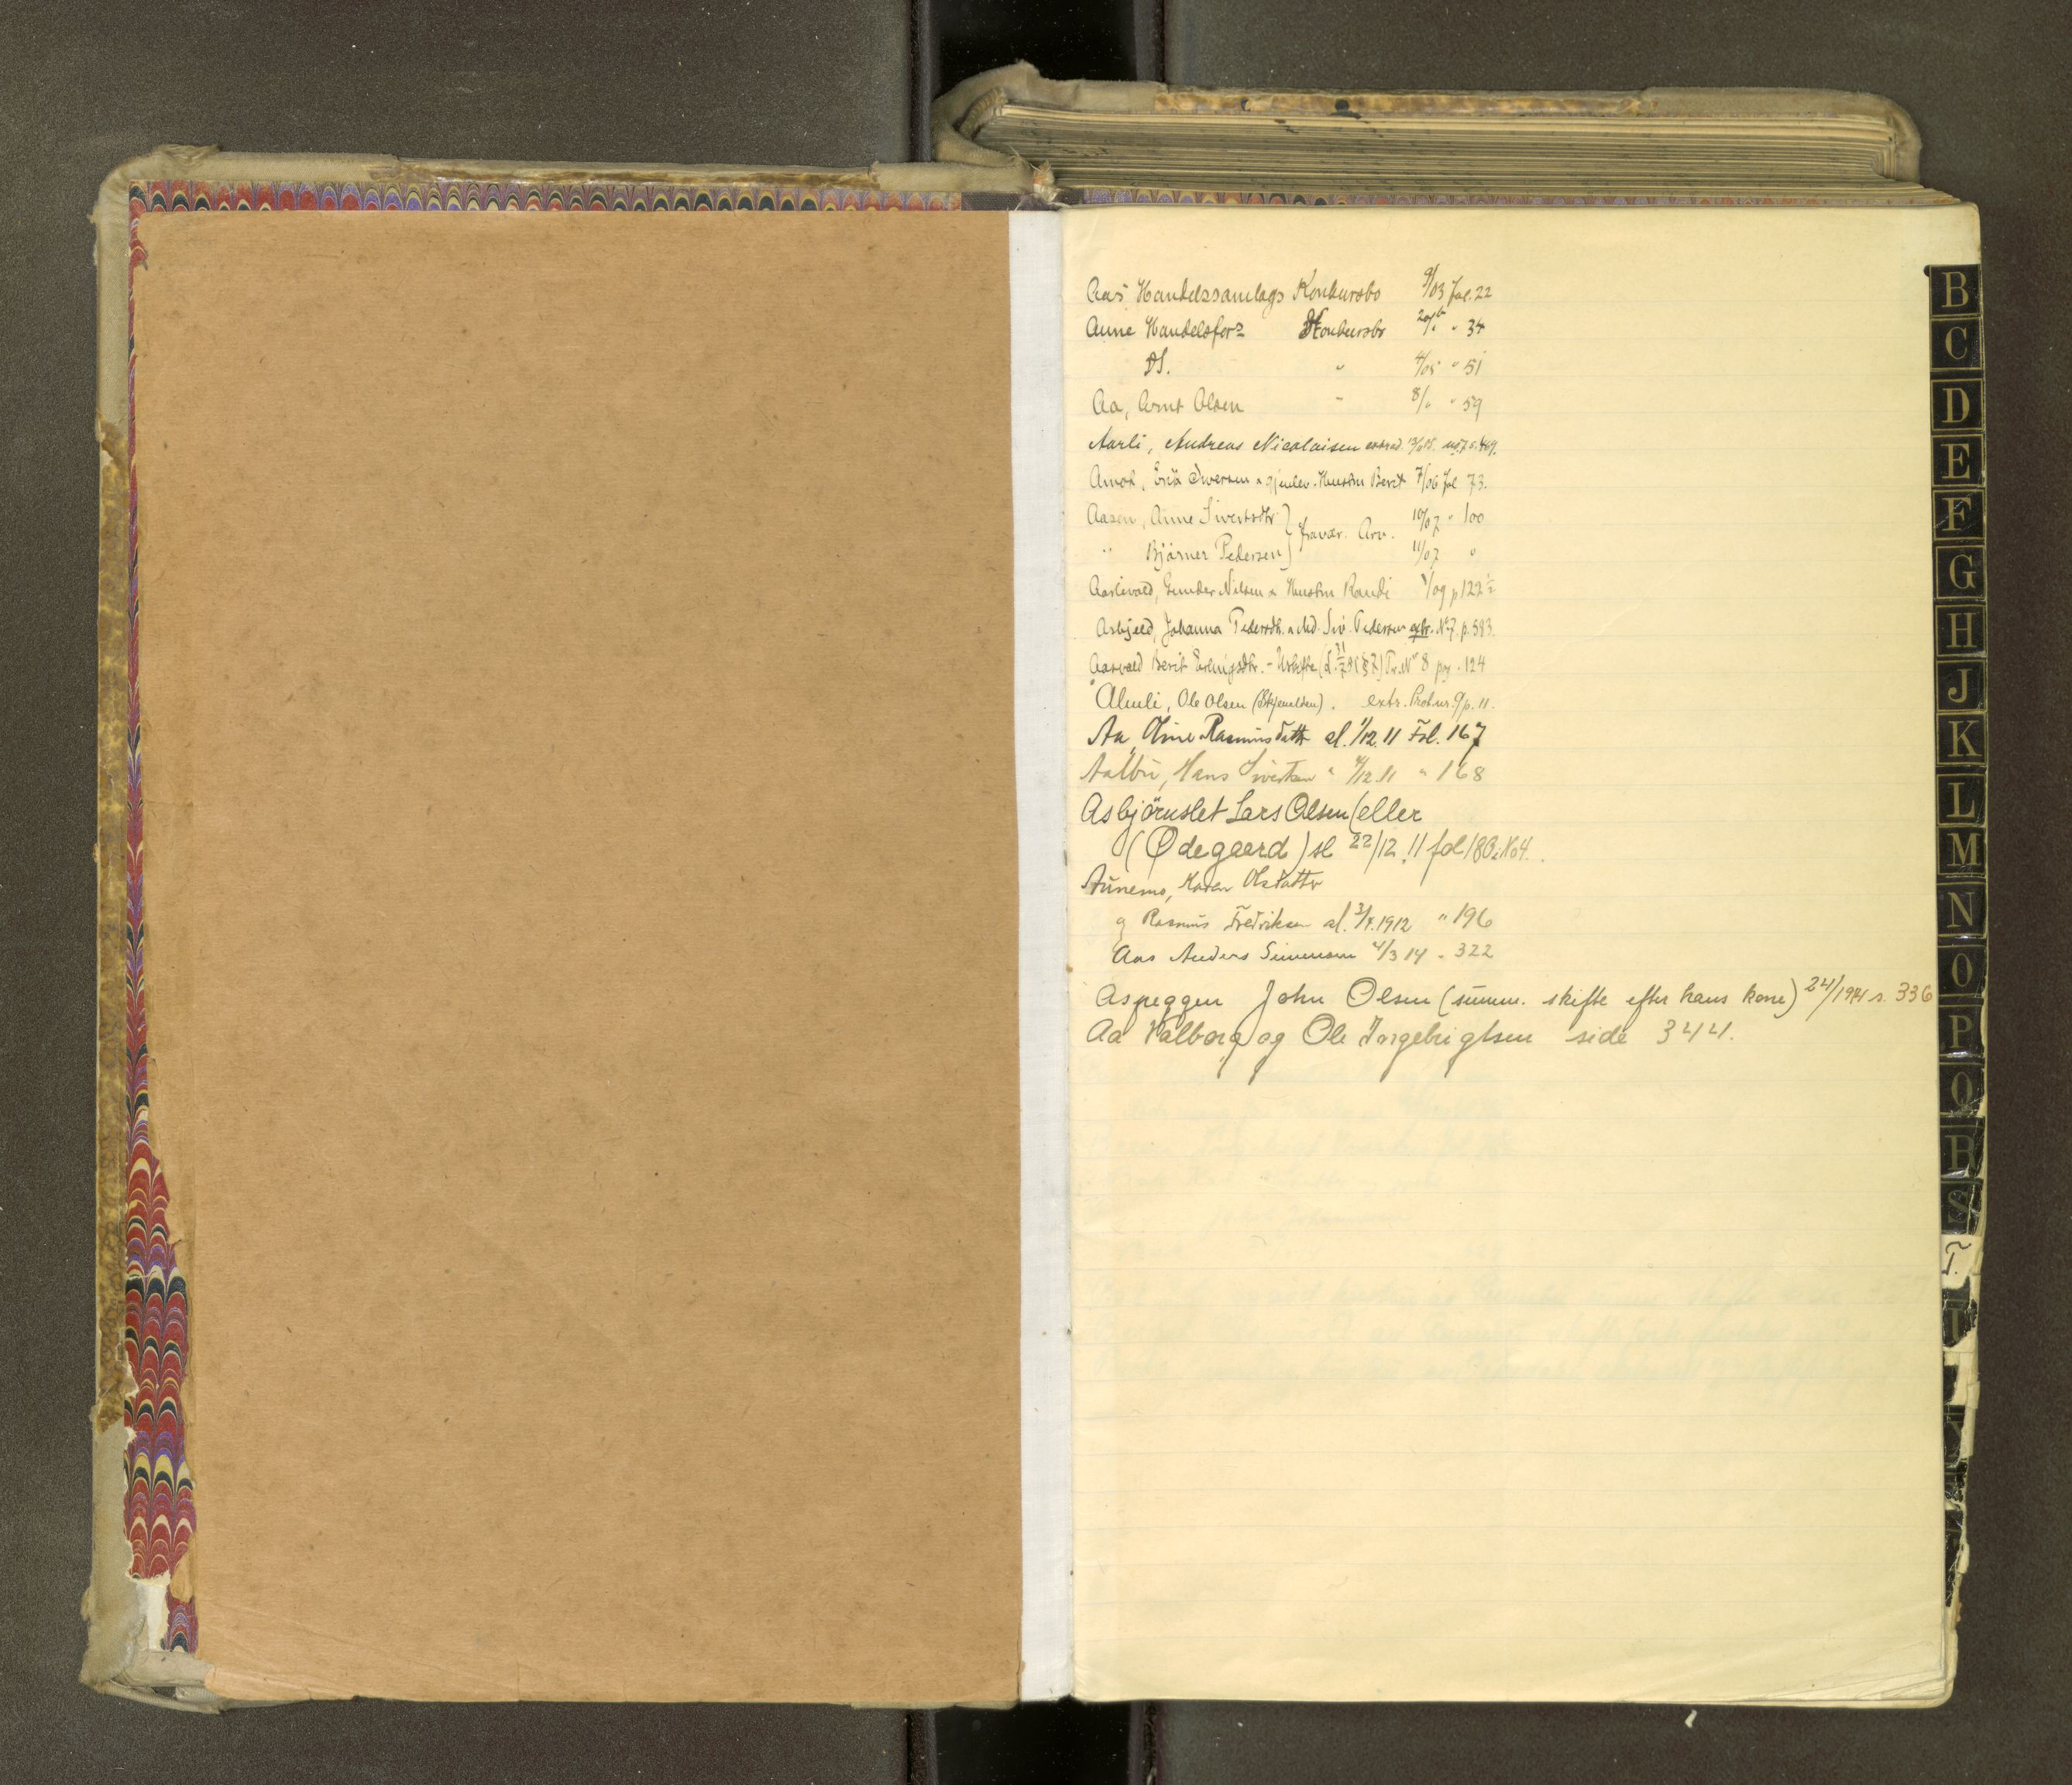 Aas Handelssamlags Konkursbo 9/03 fol. 22
Aune Handelsfor= Konkursbo " 34
DS. " 4/05 " 51
Aa, Arnt Olsen " 8/" " 59
Aarli, Andreas Nicolaisen extrad.
Amot, Erik Iversen & gjenlev. Hustru Berit 7/06 fol 73.
Aasen, Anne Sivertsdtr } fravær. Arv. 10/07 " 100
" Bjørner Pedersen } 11/07 "
Aarlivold, Gunder Nilsen & Hustru Randi /09 p 122½
Asbjeld, Johanna Pedersdtr. Pedersen extr. No 7. p. 593.
Aasvold Berit Erlingsdtr. - Uskifte No 8 pag. 124
Almli, Ole Olsen (Skjenalden). extr. Prot. nr. 9 p. 11.
Aa, Oline Rasmusdatter sl. 1/12. 11 Fol. 167
Aalbu, Hans Sivertsen " 4/12. 11 " 168
Asbjörnslet Lars Olsen (eller
(Ødegaard) sl 22/12. 11 fol 180, No 4.
Aunemo, Maren Olsdattr
og Rasmus Fredriksen sl. 3/4. 1912 " 196
Aas Anders Simensen 4/3 14 " 322
Aspeggen John Olsen (summ. skifte efter hans kone) s. 336
Aa Valborg og Ole Ingebrigtsen side 344.
B
C
D
E
F
G
H
J
K
L
M
N
O
P
Q
R
S
T.